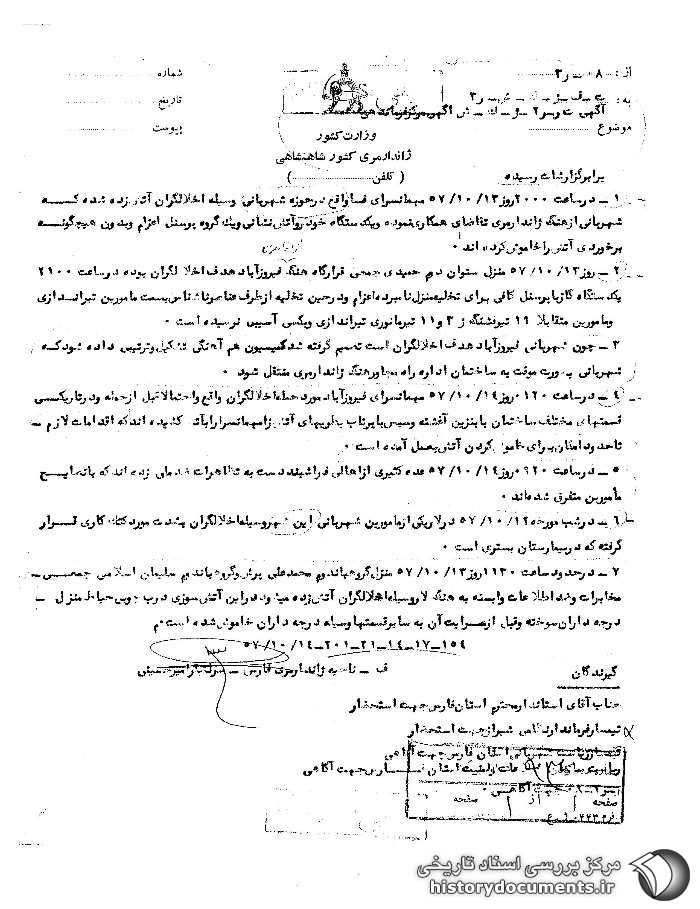 از : ۸ - ر۳
شماره
به :
تاریخ
موضوع
پیوست
وزارت کشور
ژاندارمری کشور شاهنشاهی
( تلفن )
برابر گزارشات رسیده
۱ ـ در ساعت ۲۰۰۰ روز ۱۳/ ۱۰/ ۵۷ میهمانسرای فسا واقع در حوزه شهربانی وسیله اخلالگران آتش زده شده که
شهربانی از هنگ ژاندارمری تقاضای همکاری نموده و یکدستگاه خودرو آتش نشانی و یک گروه پرسنل اعزام و بدون هیچگونه
برخوردی آتش را خاموش کرده اند ۰
۲ ـ روز ۱۳/ ۱۰/ ۵۷ منزل ستوان دوم حمیدی جمعی قرارگاه هنگ فیروزآباد هدف اخلالگران بوده در ساعت ۲۱۰۰
یکدستگاه گاز با پرسنل کافی برای تخلیه منزل نامبرده اعزام و در حین تخلیه از طرف عناصر ناشناس بسمت مامورین تیراندازی
و مامورین متقابلا ۱۹ تیر فشنگ ژ ۳ و ۱۱ تیر مانوری تیراندازی و بکسی آسیبی نرسیده است ۰
۳ ـ چون شهربانی فیروزآباد هدف اخلالگران است تصمیم گرفته شد کمیسیون هم آهنگی تشکیل و ترتیبی داده شود که
شهربانی بصورت موقت به ساختمان اداره راه مجاور هنگ ژاندارمری منتقل شود ۰
۴ ـ در ساعت ۰۱۲۰ روز ۱۴/ ۱۰/ ۵۷ میهمانسرای فیروزآباد مورد حمله اخلالگران واقع و احتمالا قبل از حمله و در تاریکی
قسمتهای مختلف ساختمان با بنزین آغشته و سپس با پرتاب بطریهای آتش زا میهمانسرا را بآتش کشیده اند که اقدامات لازم ـ
تا حدود امکان برای خاموش کردن آتش بعمل آمده است ۰
۵ ـ در ساعت ۰۹۲۰ روز ۱۴/ ۱۰/ ۵۷ عده کثیری از اهالی فراشبند دست به تظاهرات ضد ملی زده اند که با نصایح
مامورین متفرق شده‌اند ۰
۶ ـ در شب مورخه ۱۲/ ۱۰/ ۵۷ در لار یکی از مامورین شهربانی این شهر وسیله اخلالگران بشدت مورد کتک کاری قرار
گرفته که در بیمارستان بستری است ۰
۷ ـ در حدود ساعت ۱۱۳۰ روز ۱۳/ ۱۰/ ۵۷ منزل گروهباندوم محمدعلی و گروهباندوم سلیمان اسلامی جمعی ـ
مخابرات و ضد اطلاعات وابسته به هنگ لار وسیله اخلالگران آتش زده میشود در این آتش سوزی درب چوبی حیاط منزل ـ
درجه داران سوخته و قبل از سرایت آن به سایر قسمتها وسیله درجه داران خاموش شده است م
۱۵۴ـ۱۷ـ۱۴ـ۲۱ـ۲۰۱ ۱۴/ ۱۰/ ۵۷
گیرندگان
ف ـ ناحیه ژاندارمری فارس ـ
جناب آقای استاندار محترم استان فارس جهت استحضار
تیمسار فرماندار نظامی شیراز جهت استحضار
تیمسار ریاست شهربانی استان فارس جهت آگاهی
ریاست سازمان اطلاعات و امنیت استان فارس جهت آگاهی
صفحه از صفحه
مرکز بررسی اسناد تاریخی
historydocuments.ir